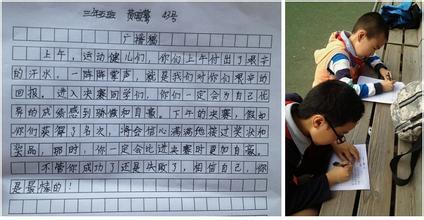 三年五班 黄 42号
广播稿
上午，运动健儿们，你们上午付出了艰辛
的汗水，一阵阵掌声，就是我们对你艰辛的
回报。进入决赛同学们，你们一定会为自己优
异的成绩感到骄傲和自豪。下午的决赛，假如
你们获得了名次，将会信心满满地接过奖状和
奖品，那时，你一定会比进决赛时更加自豪。
不管你成功了还是失败了，相信自己，你
是最棒的！